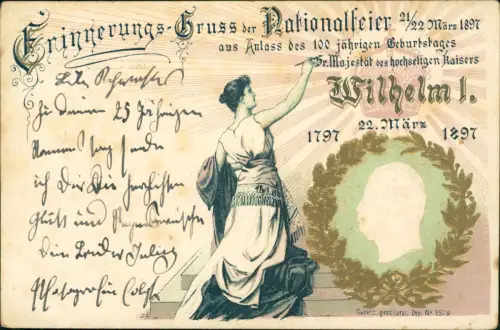 Erinnerungs-Gruss der Nationalfeier 21/22 März 1897
aus Anlass des 100 jährigen Geburtstages
Sr. Majestät des hochseligen Kaisers
Wilhelm I.
22. März
1797 1897
Zu deinem 25 Jährigen
sende
ich Dir die herzlichsten
Glück und
Dein Bruder Julius
Gesetz. gesch. Dep. No 3579